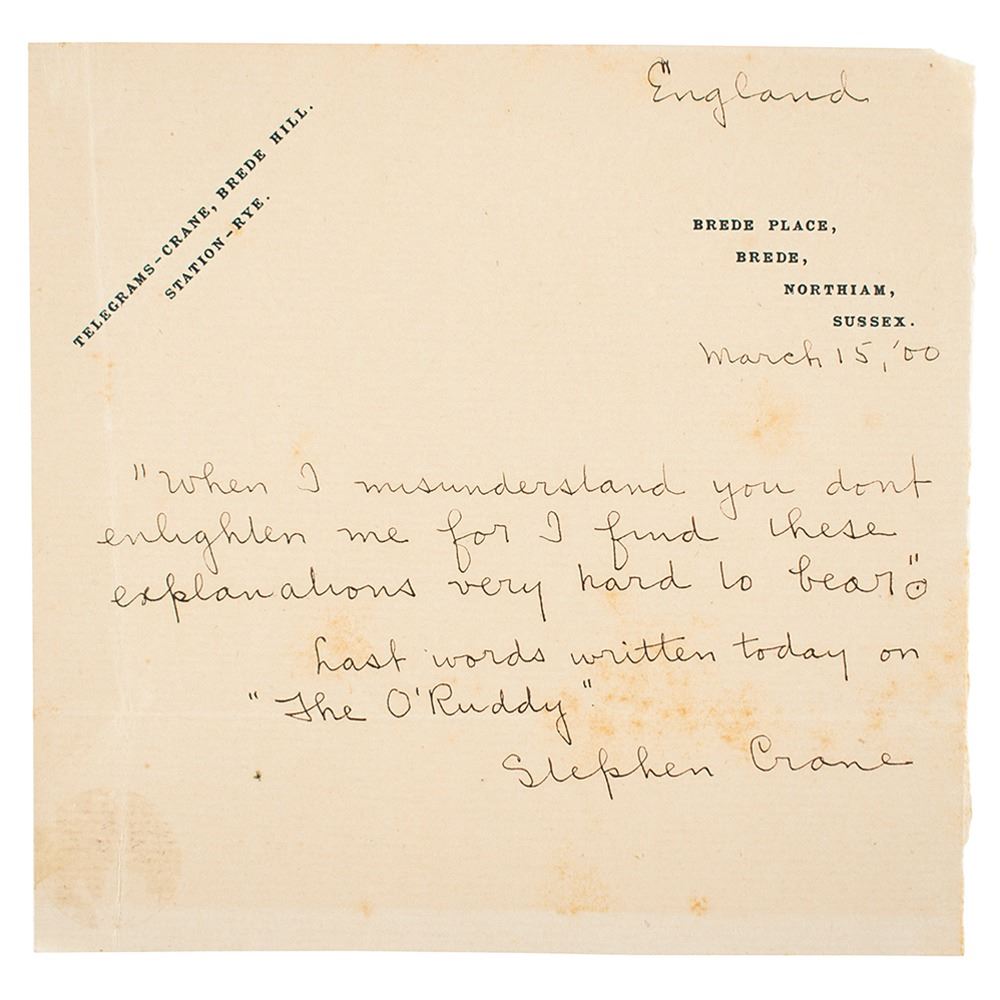 England
TELEGRAMS-CRANE, BREDE HILL.
STATION-RYE.
BREDE PLACE,
BREDE,
NORTHIAM,
SUSSEX.
March 15, '00
"When I misunderstand you dont
enlighten me for I find these
explanations very hard to bear".
Last words written today on
"The O'Ruddy".
Stephen Crane